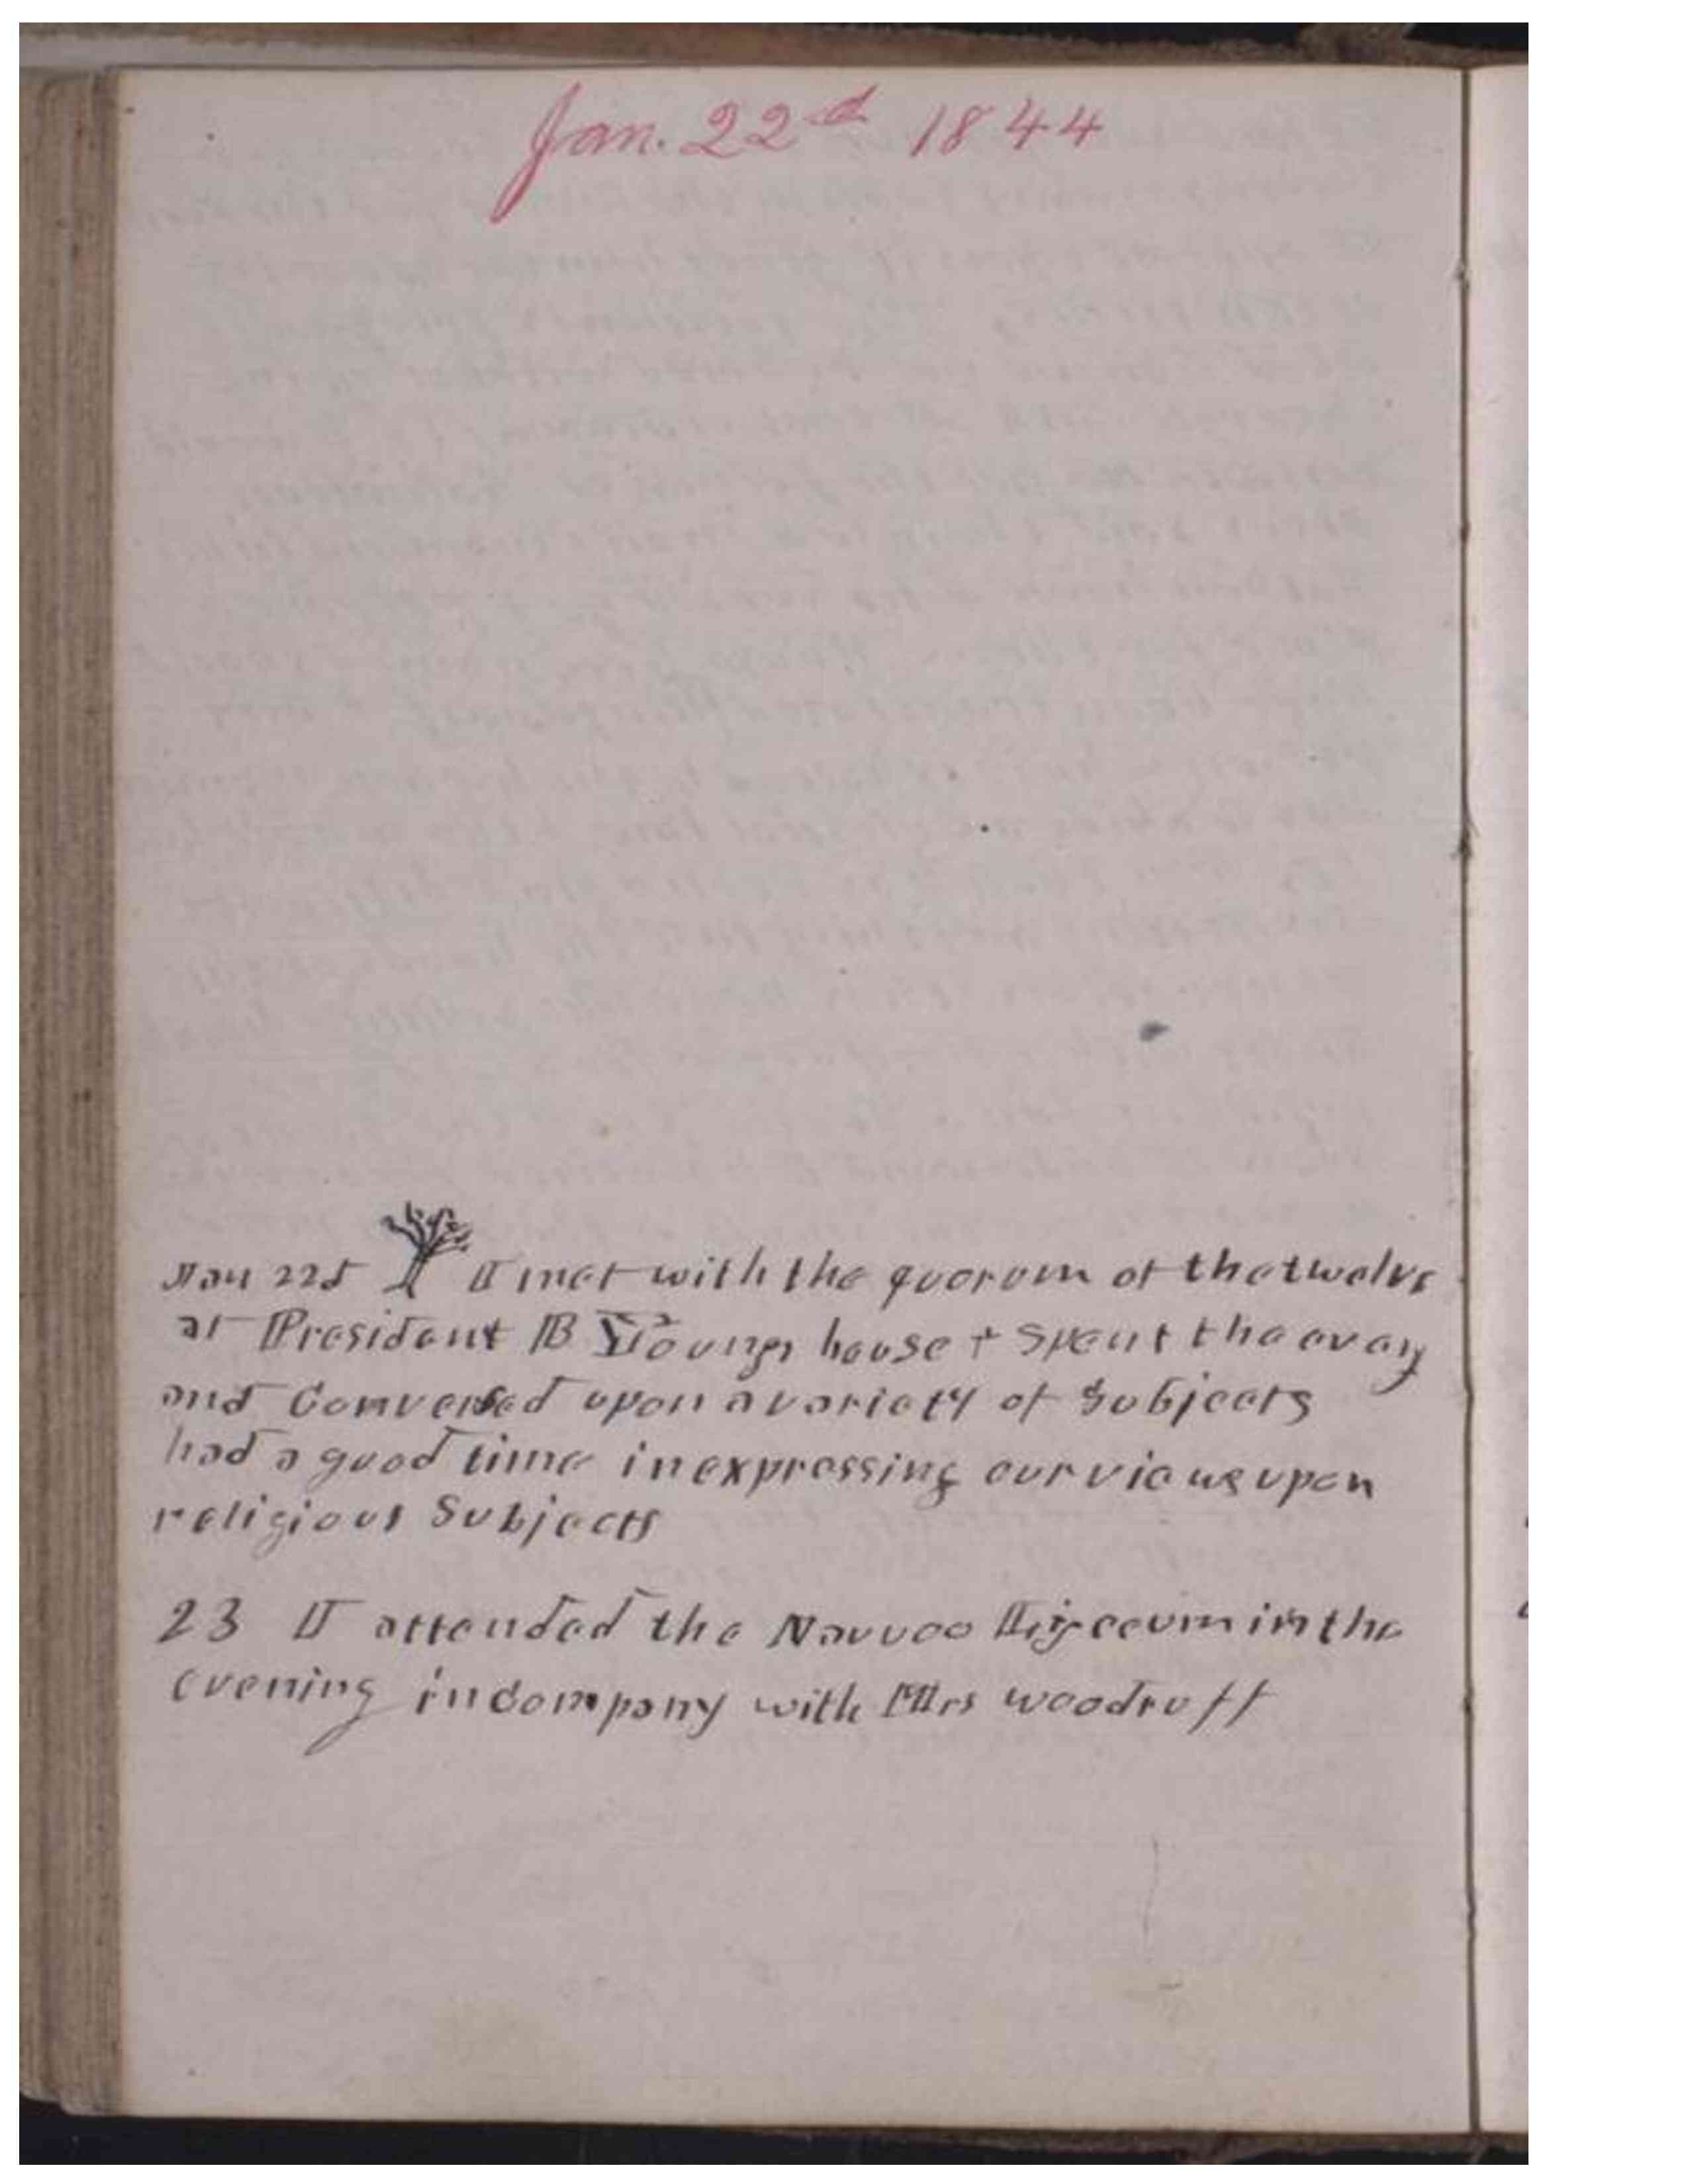 Jan. 22d 1844
Jan 22d I met with the quorum of the twelve
at President B Youngs house & Spent the eveng
and Conversed upon a variety of Subjects
had a good time in expressing our views upon
religious Subjects
23 I attended the Nauvoo Lyceum in the
evening in company with Mrs Woodruff